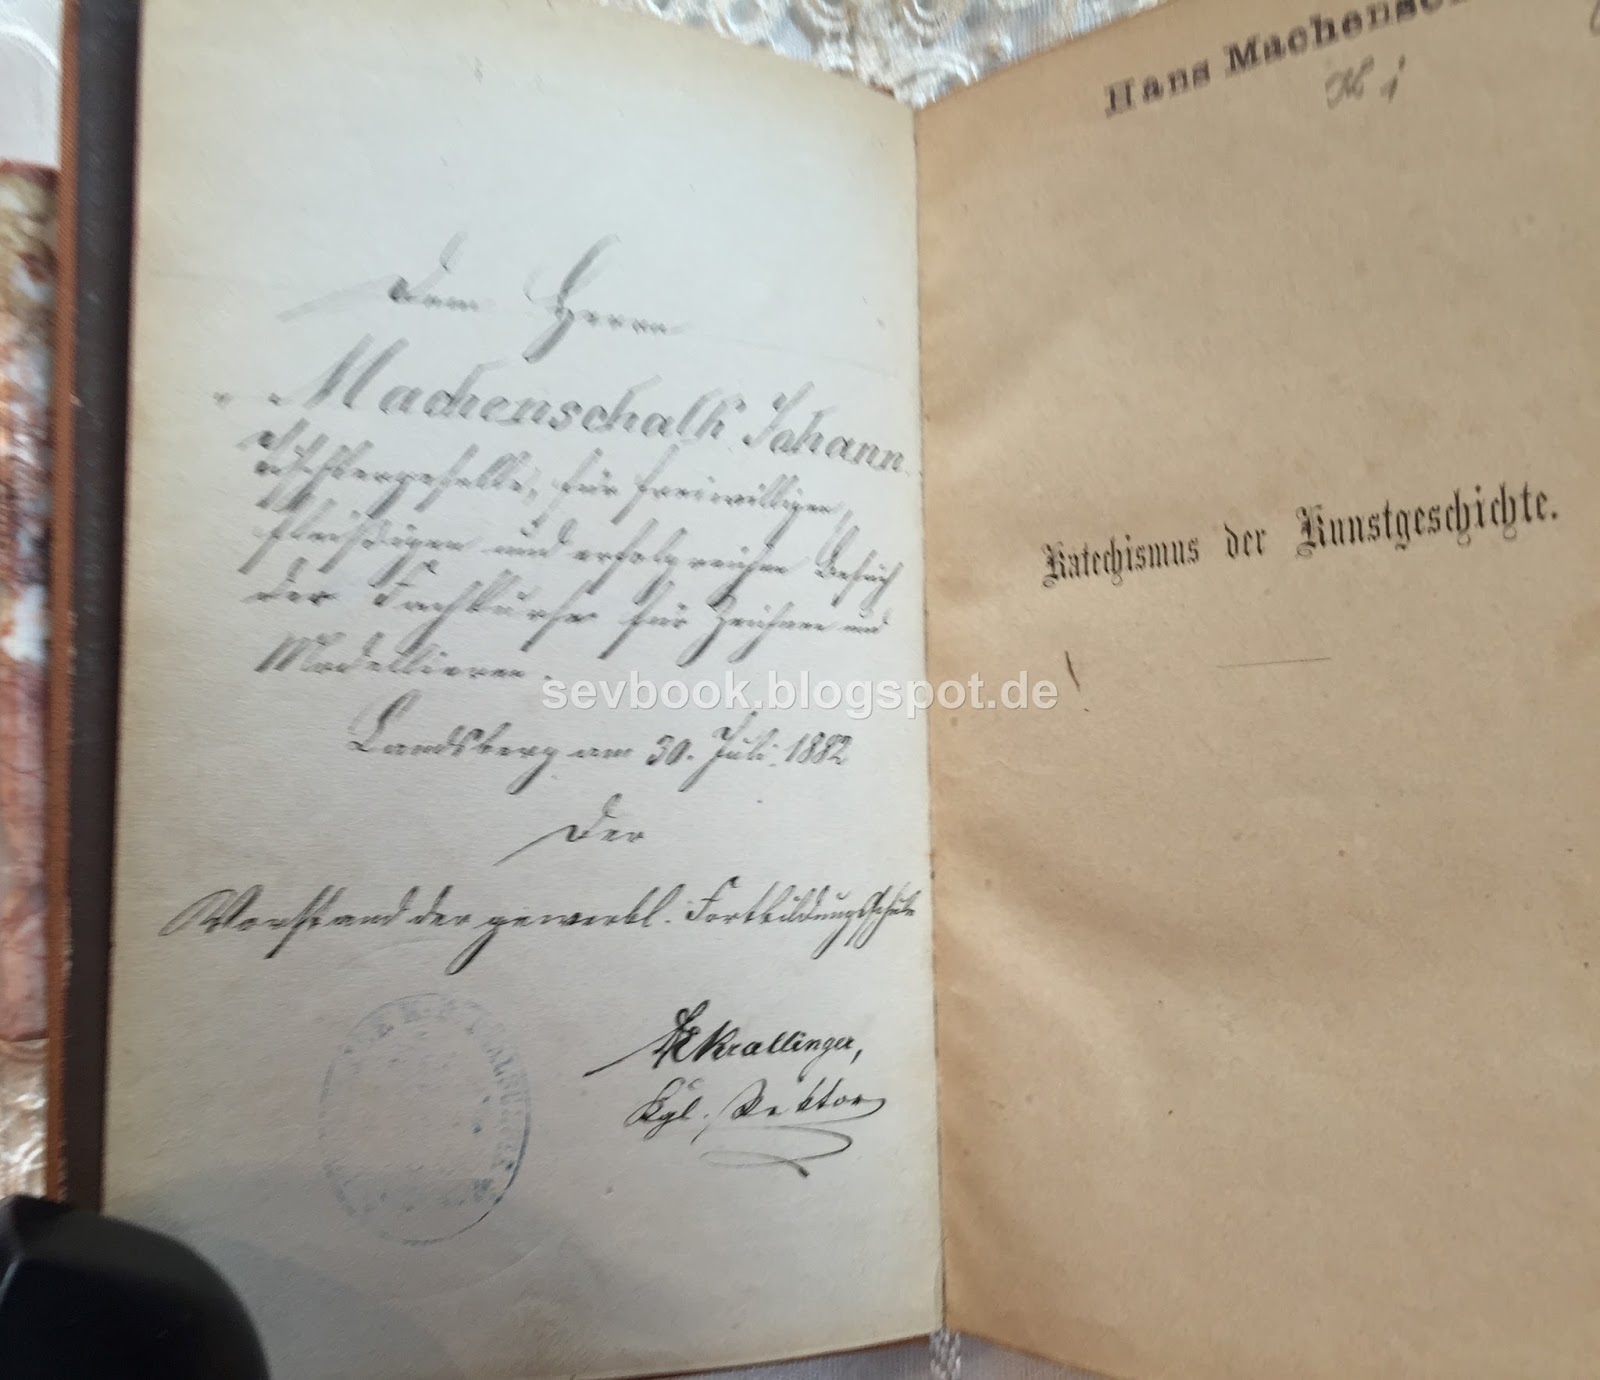 Dem Herrn
Machenschalk Johann
Tischlergeselle, für freiwilligen,
fleißigen und erfolgreichen Besuch
der Fachkurse für Zeichnen und
Modellieren.
Landsberg am 30. Juli 1882
Der
Vorstand der gewerbl. Fortbildungsschule
Krallinger,
Kgl. Rektor
Hans
Katechismus der Kunstgeschichte.
sevbook.blogspot.de